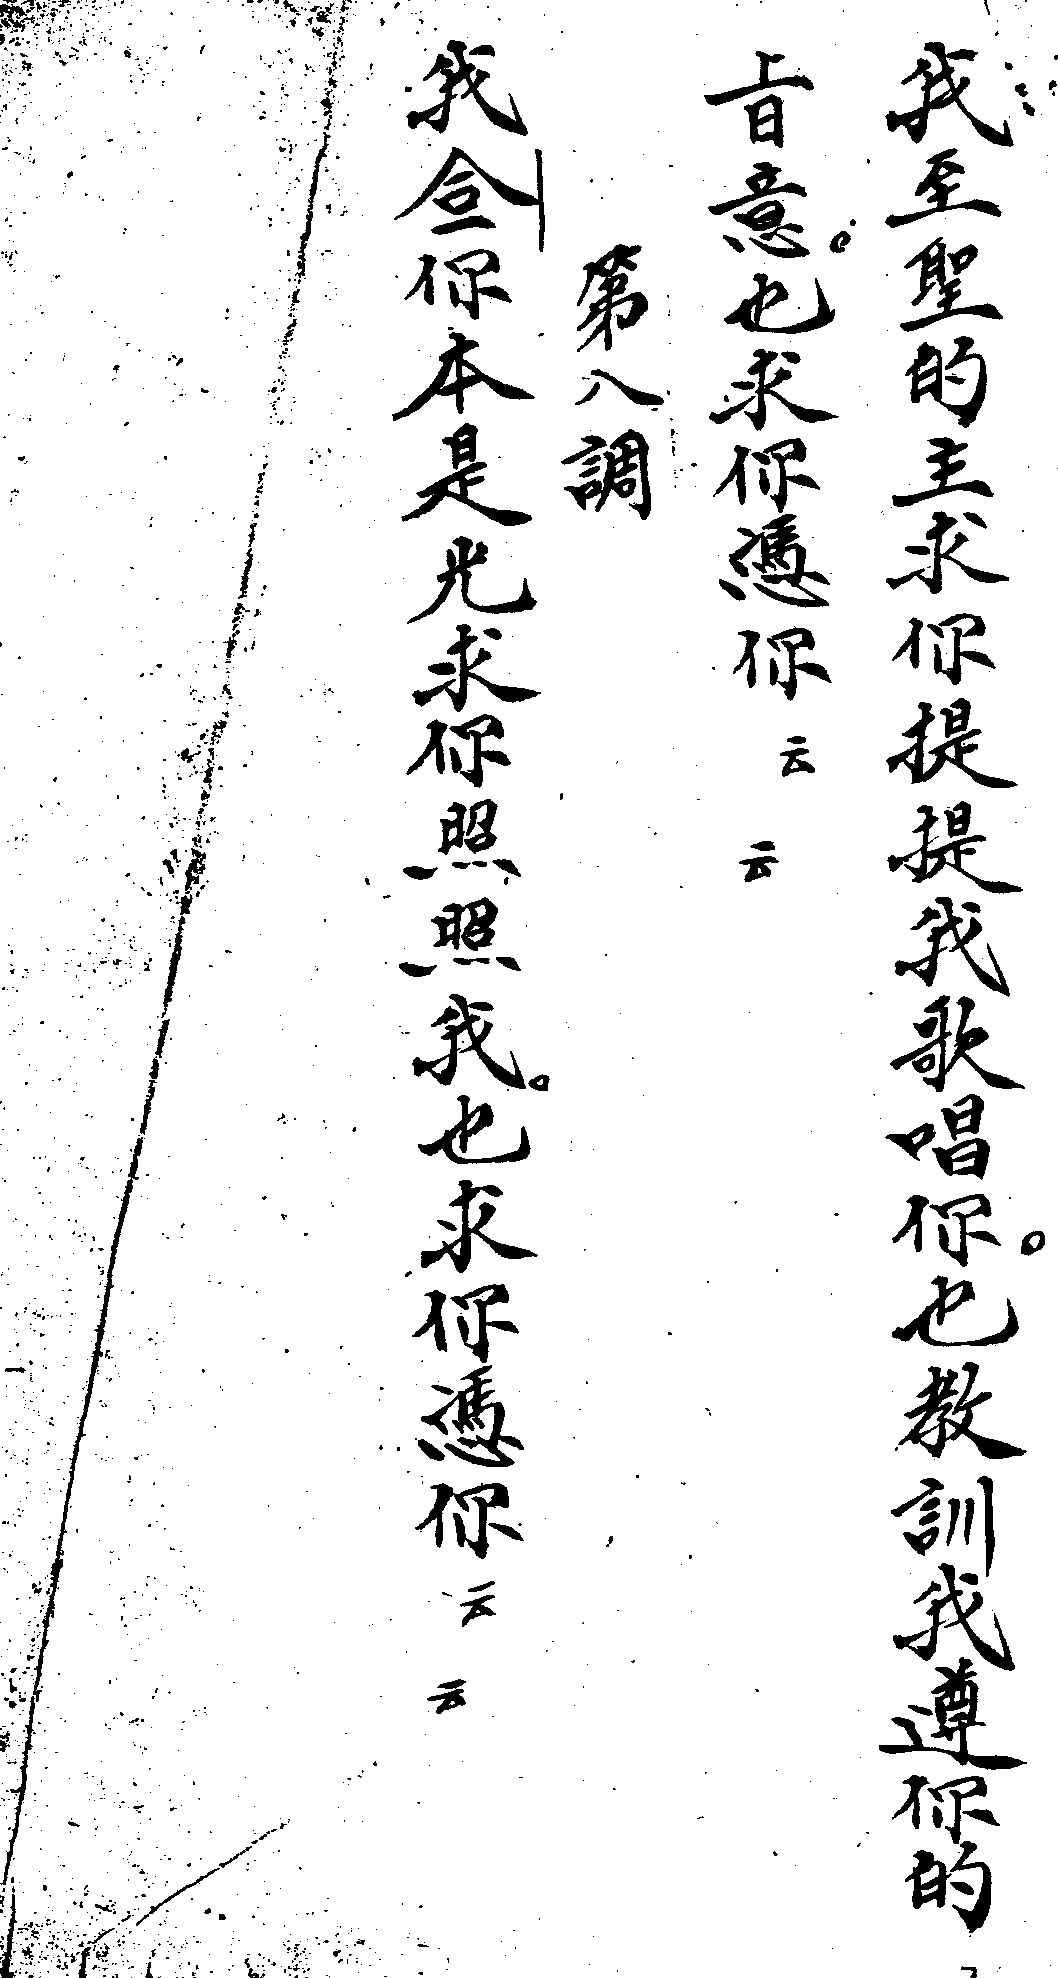 我至聖的主求你提提我歌唱你。也教訓我遵你的
旨意。也求你憑你云云
第八調
我你本是光求你照照我。也求你憑你云云